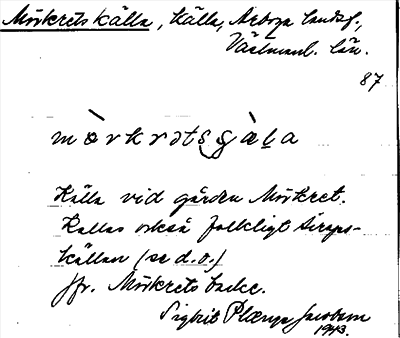 Mörkrets källa, källa, Arboga landsf.,
Västmanl. län.
87
mörkrətsçæ̀ḷa
Källa vid gården Mörkret.
Kallas också folkligt Siraps-
källan (se d.o.)
Jfr. Mörkrets backe.
Sigbrit Plænge Jacobson
1943.